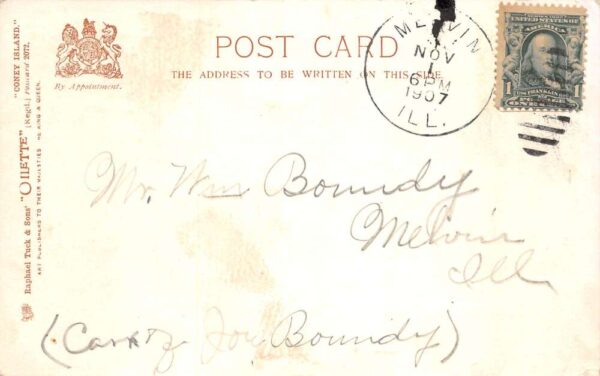 "CONEY ISLAND."
Raphael Tuck & Sons' "OILETTE" [Regd.] Postcard 2072.
ART PUBLISHERS TO THEIR MAJESTIES THE KING & QUEEN.
By Appointment.
POST CARD
THE ADDRESS TO BE WRITTEN ON THIS SIDE.
MELVIN
NOV
1
6 PM
1907
ILL.
1 FRANKLIN 1
ONE CENT
Mr. Wm Boundy
Melvin
Ill
(Care of Jou Boundy)